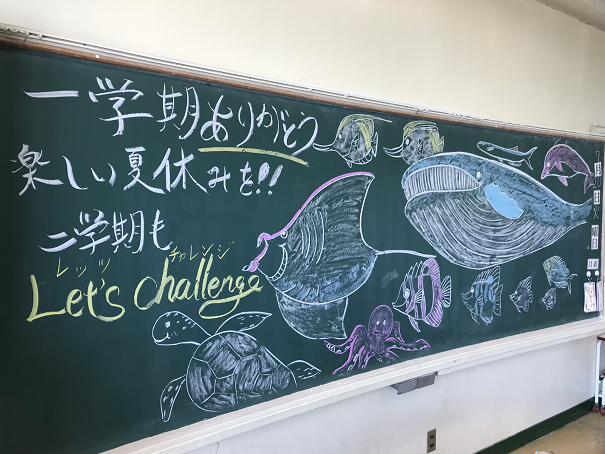 一学期ありがとう
楽しい夏休みを!!
二学期も
レッツ チャレンジ
Let's challenge